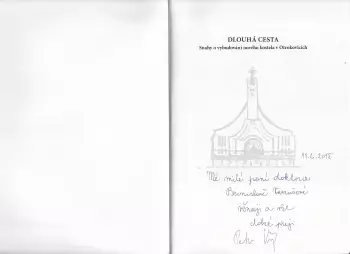 DLOUHÁ CESTA
Snahy o vybudování nového kostela v Otrokovicích
11.6.2015
Mé milé paní doktorce
Bronislavě
věnuji a vše
dobré přeji
Petr